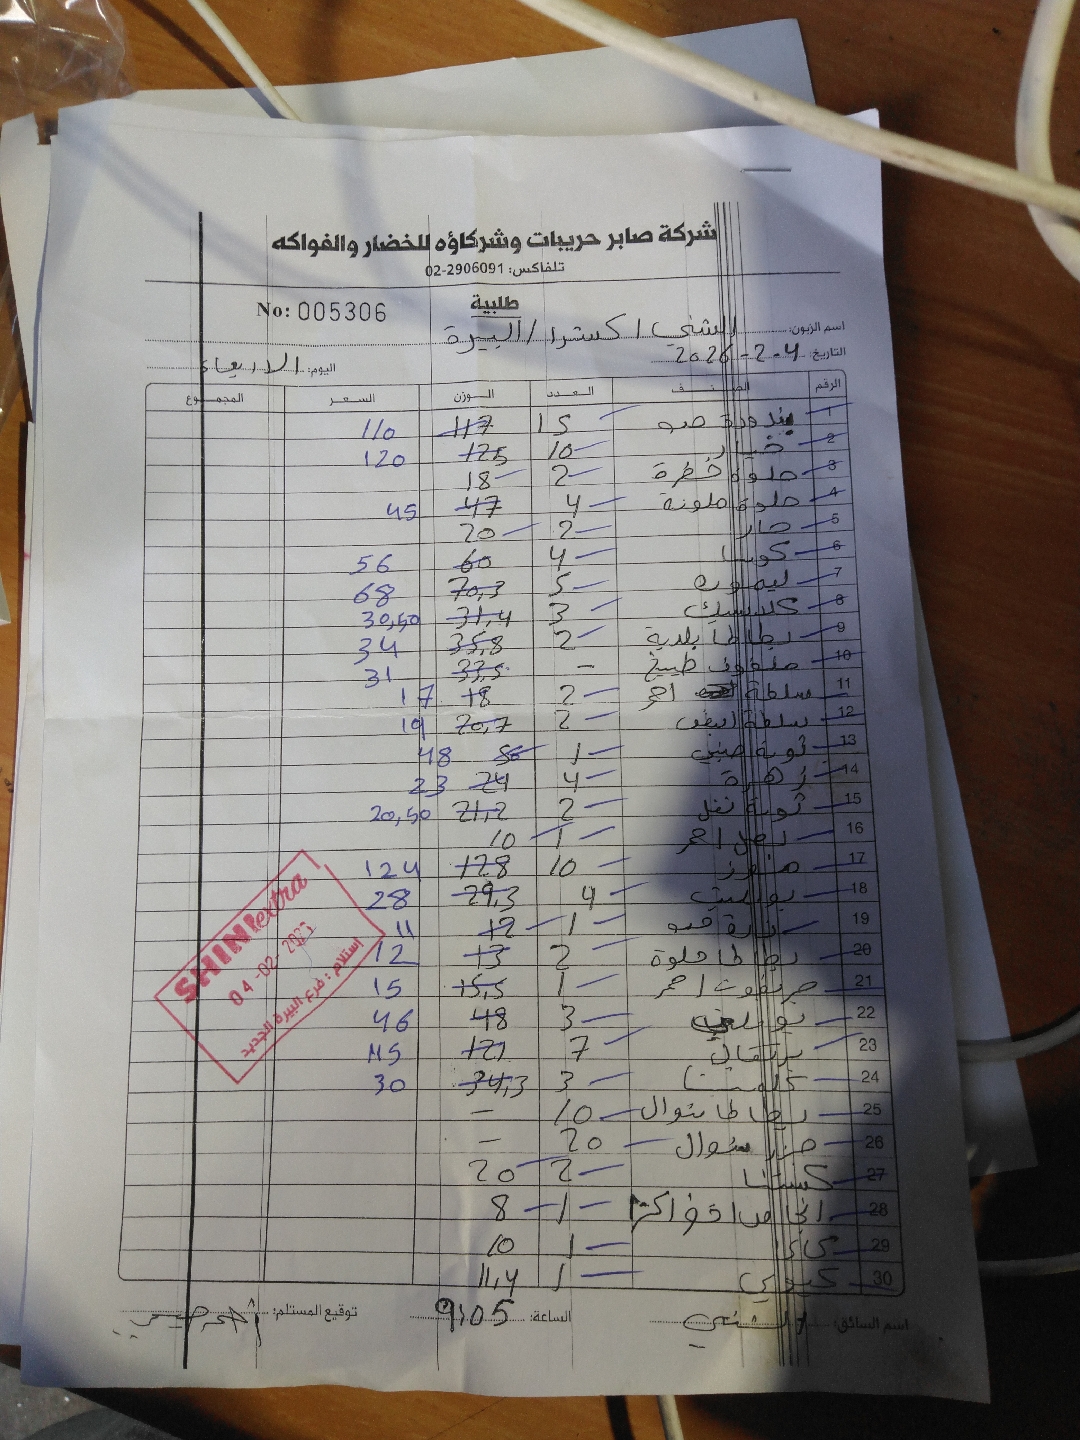 شركة صابر حريبات وشركاؤه للخضار والفواكه
تلفاكس: 02-2906091
طلبية
No: 005306
اسم الزبون: الشني اكسترا / البيرة
التاريخ: 4-2-2026
اليوم: الاربعاء
الرقم الصنف العدد الوزن السعر المجموع
1 بندورة 15 117 110
2 خيار 10 125 120
3 حلوة خضرة 2 18
4 حلوة ملونة 4 47 45
5 حار 2 20
6 كوسا 4 60 56
7 ليمون 5 70,3 68
8 كلاسيك 3 31,4 30,50
9 بطاطا بلدية 2 35,8 34
10 ملفوف طبيخ - 33,5 31
11 سلطة احمر 2 18 17
12 سلطة ابيض 2 20,7 19
13 ثومة صيني 1 48
14 زهرة 4 24 23
15 ثومة نفل 2 21,2 20,50
16 بصل احمر 1 10
17 10 128 124
18 4 29,3 28
19 1 12 11
20 بطاطا حلوة 2 13 12
21 جريفوت احمر 1 15,5 15
22 3 48 46
23 برتقال 7 121 115
24 كلمنتينا 3 34,3 30
25 بطاطا شوال 10 -
26 جزر شوال 20 -
27 كستنا 2 20
28 1 8
29 كاكا 1 10
30 كيوي 1 11,4
اسم السائق: الشني
الساعة: 9:05
توقيع المستلم:
SHINI extra
04-02-
استلام: فرع البيرة الجديد